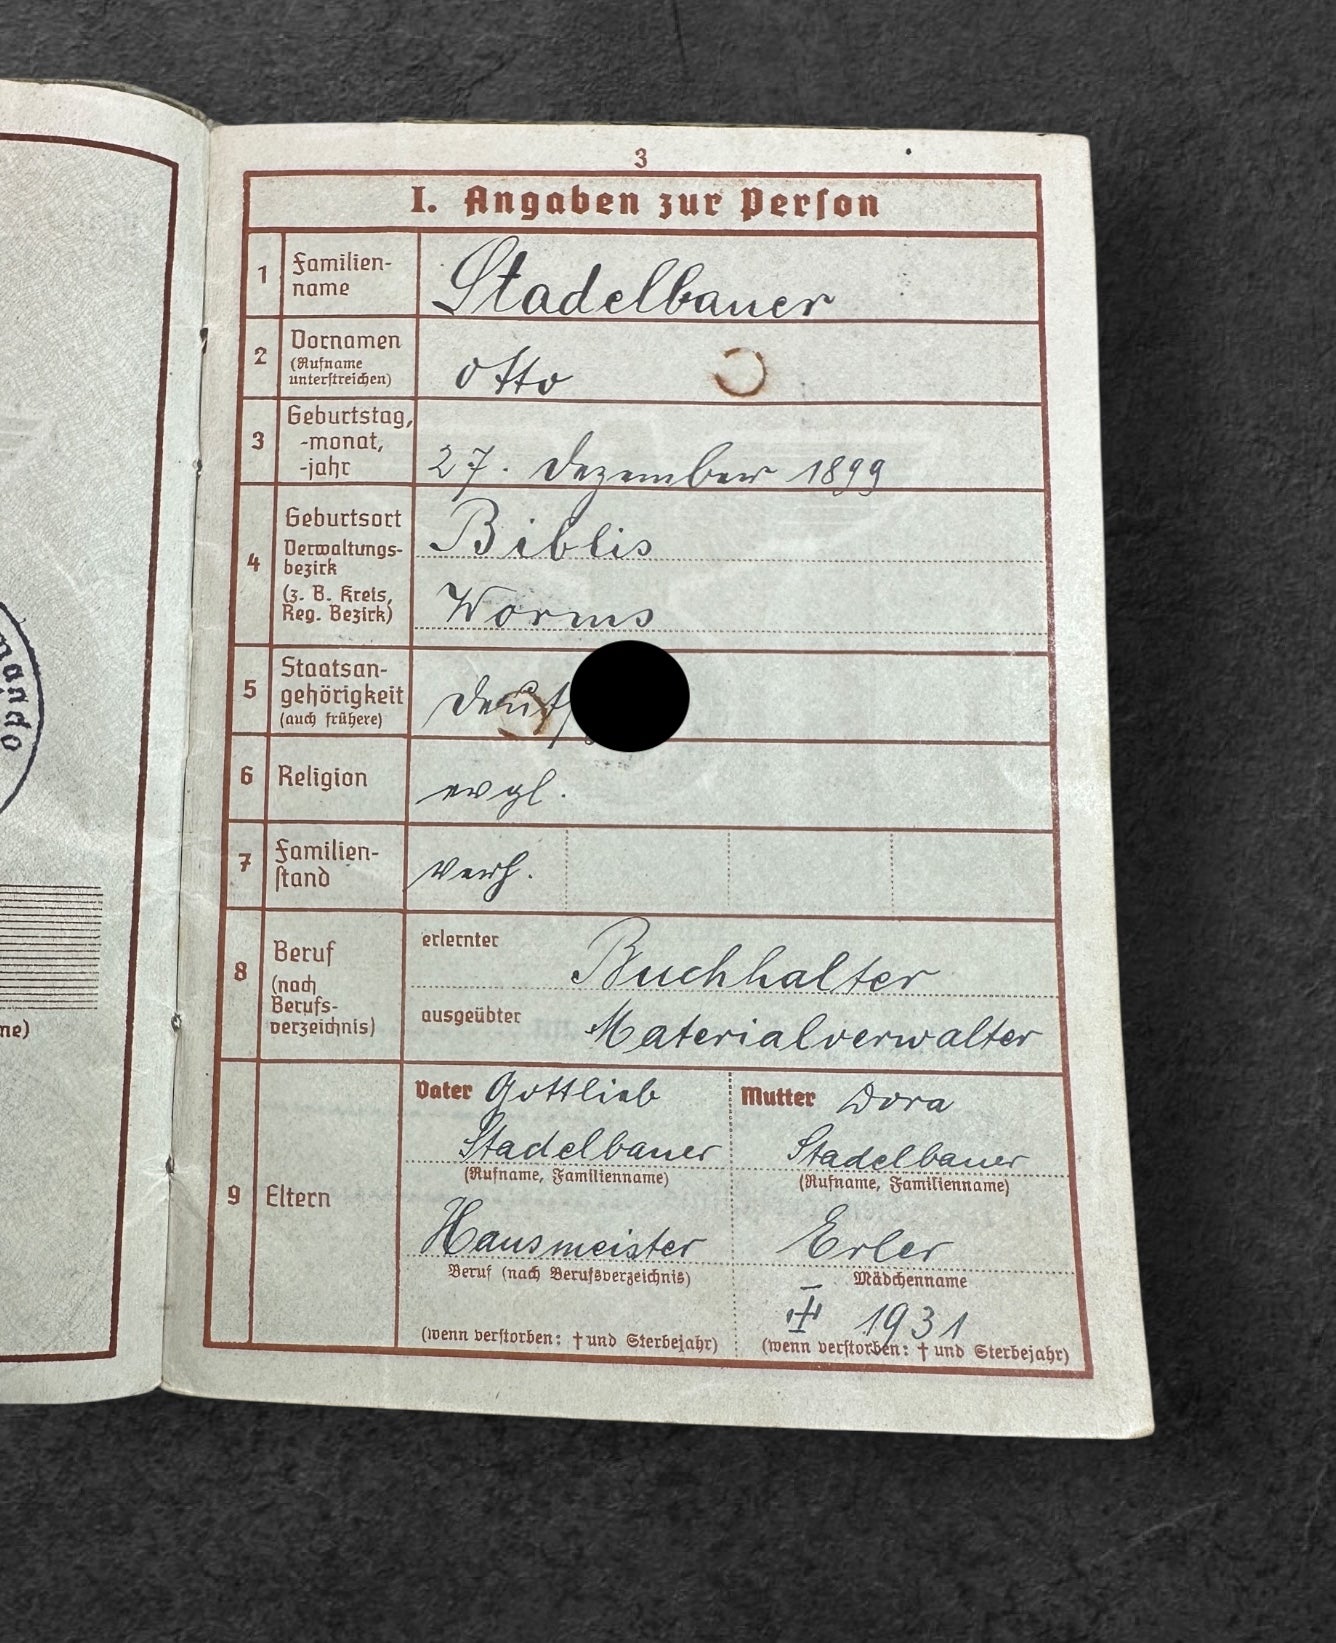 mando
me)
3
I. Angaben zur Person
1 Familien-
name
Stadelbauer
2 Vornamen
(Rufname
unterstreichen)
Otto
3 Geburtstag,
-monat,
-jahr
27. Dezember 1899
4 Geburtsort
Biblis
Verwaltungs-
bezirk
(z. B. Kreis,
Reg. Bezirk)
Worms
5 Staatsan-
gehörigkeit
(auch frühere)
6 Religion
evgl.
7 Familien-
stand
verh.
8 Beruf
(nach
Berufs-
verzeichnis)
erlernter Buchhalter
ausgeübter Materialverwalter
9 Eltern
Vater Gottlieb
Stadelbauer
(Rufname, Familienname)
Hausmeister
Beruf (nach Berufsverzeichnis)
(wenn verstorben: † und Sterbejahr)
Mutter Dora
Stadelbauer
(Rufname, Familienname)
Erler
Mädchenname
† 1931
(wenn verstorben: † und Sterbejahr)